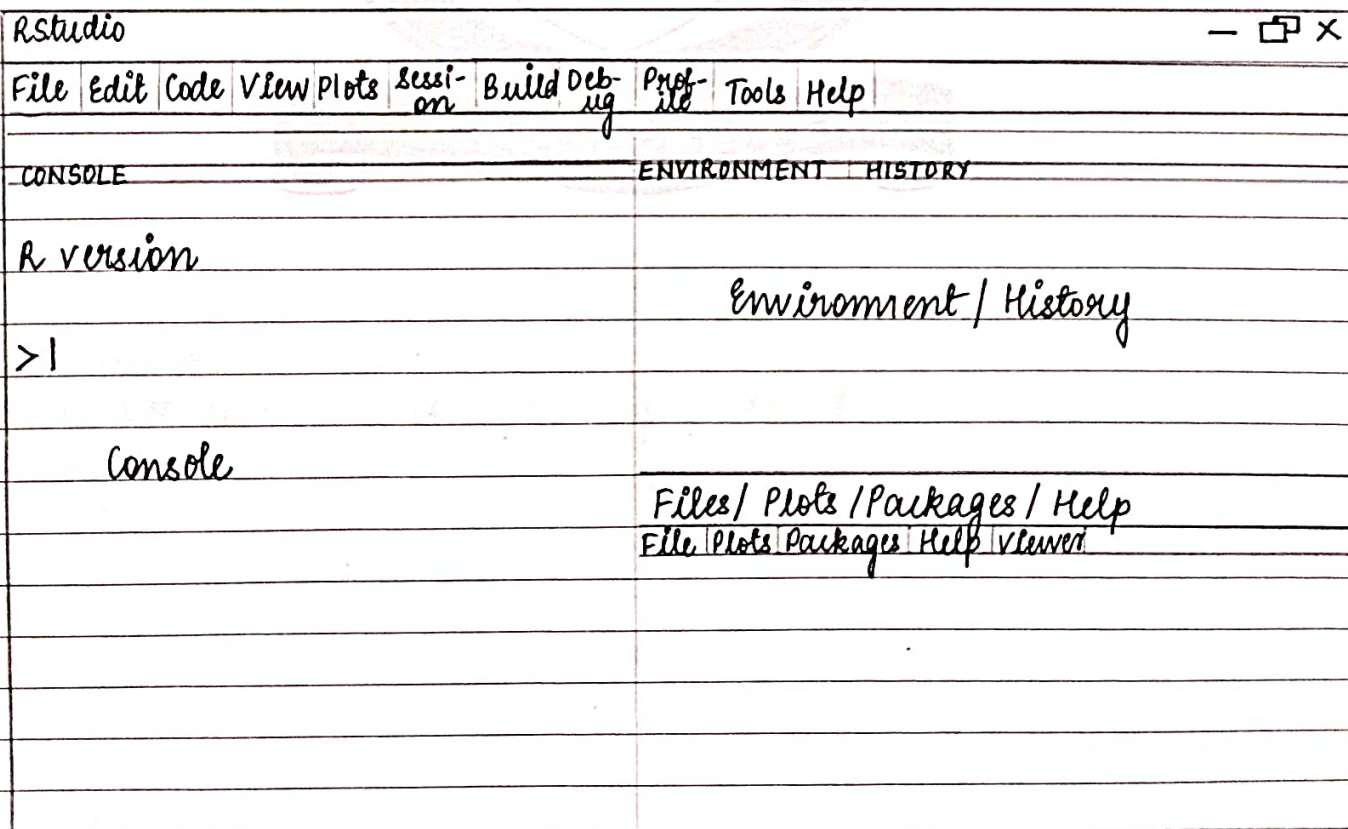 RStudio
File Edit Code View Plots Sessi-on Build Deb-ug Prof-ile Tools Help
CONSOLE ENVIRONMENT HISTORY
R version
Enviroment / History
>|
Console
Files / Plots / Packages / Help
File Plots Packages Help Viewer